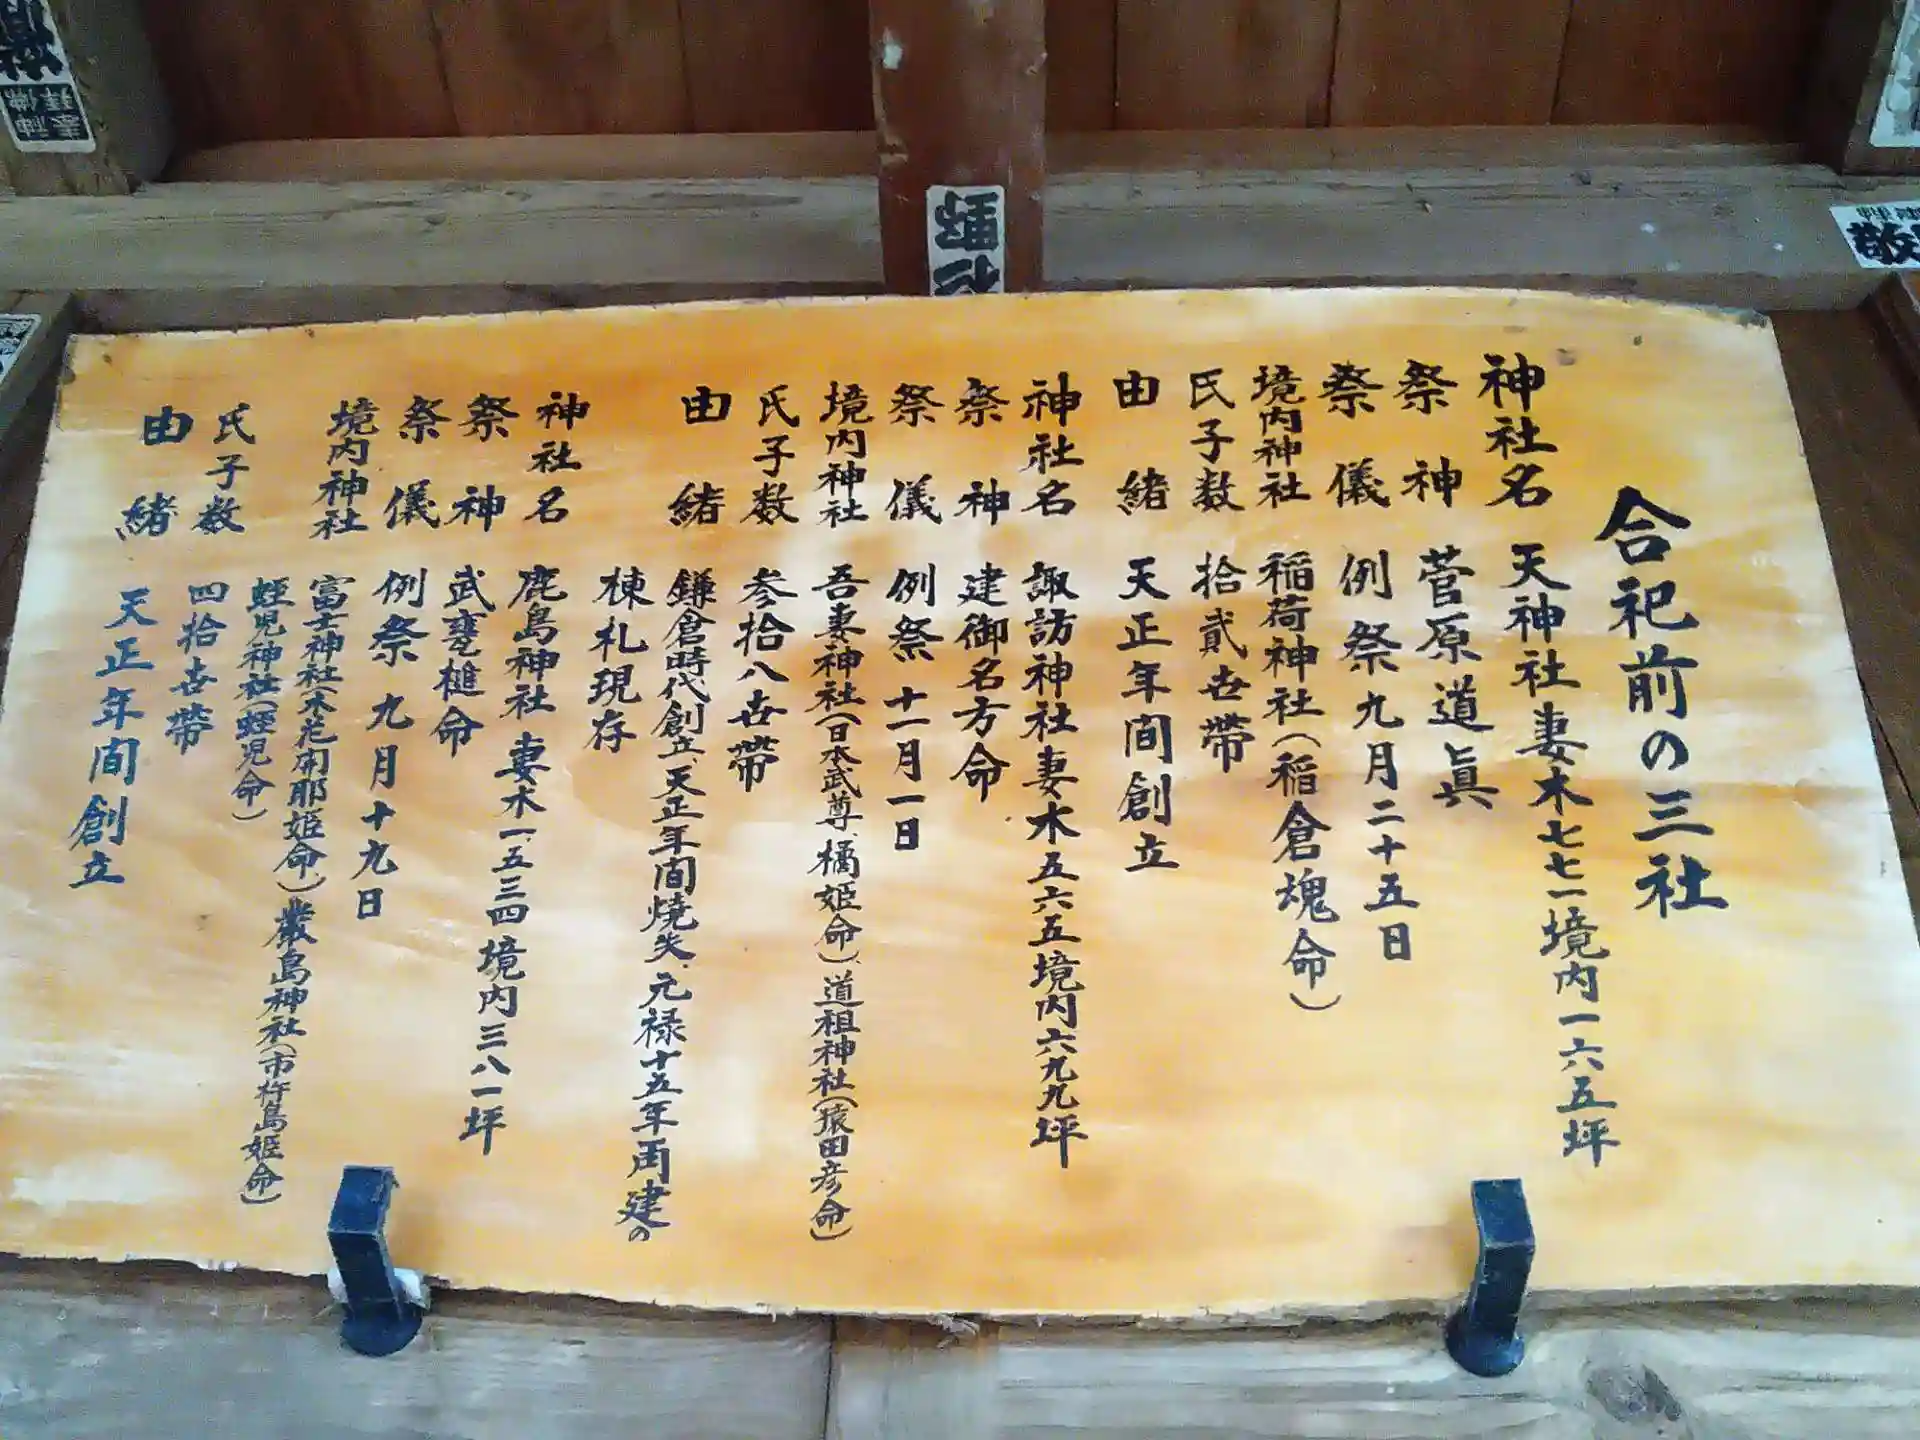 合祀前の三社
神社名 天神社妻木七七一境内一六五坪
祭神 菅原道眞
祭儀 例祭九月二十五日
境内神社 稲荷神社(稲倉魂命)
氏子数 拾貮世帶
由緒 天正年間創立
神社名 諏訪神社妻木五六五境内六九九坪
祭神 建御名方命
祭儀 例祭十一月一日
境内神社 吾妻神社(日本武尊、橘姫命)、道祖神社(猿田彦命)
氏子数 参拾八世帶
由緒 鎌倉時代創立、天正年間焼失、元禄十五年再建の
棟札現存
神社名 鹿島神社 妻木一、五三四境内三八一坪
祭神 武甕槌命
祭儀 例祭九月十九日
境内神社 富士神社(木花開耶姫命)、嚴島神社(市杵島姫命)
蛭児神社(蛭児命)
氏子数 四拾世帶
由緒 天正年間創立